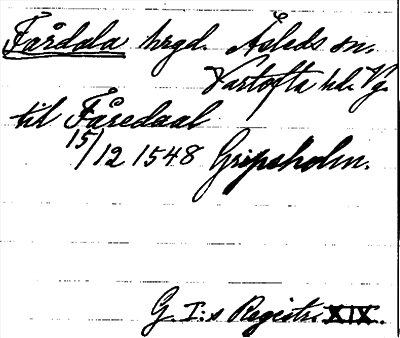 Fårdala hrgd. Åsleds sn.
Vartofta hd. Vg.
til Fåredaal
15/12 1548 Gripsholm.
G. I:s Registr. XIX.